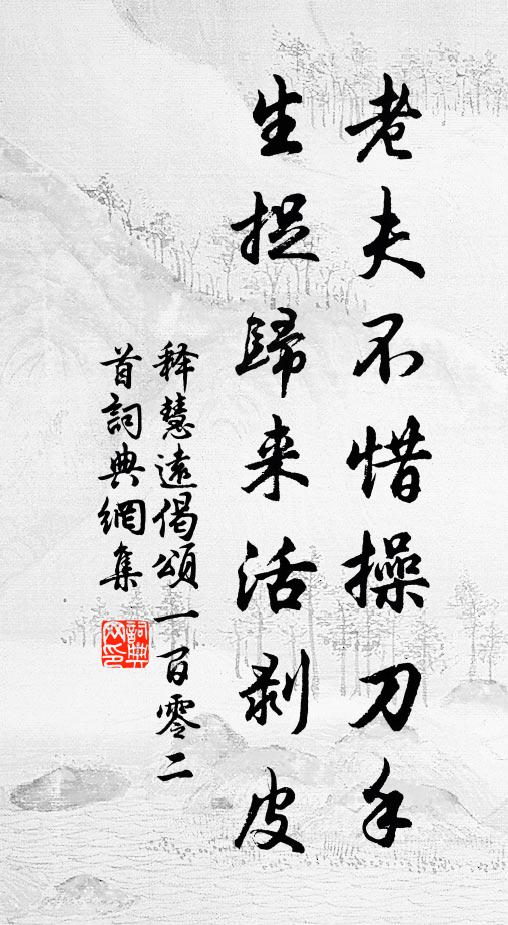 老夫不惜操刀手
生捉歸来活剥皮
释慧遠偈頌一百零二
首詞典網集
詞典網印